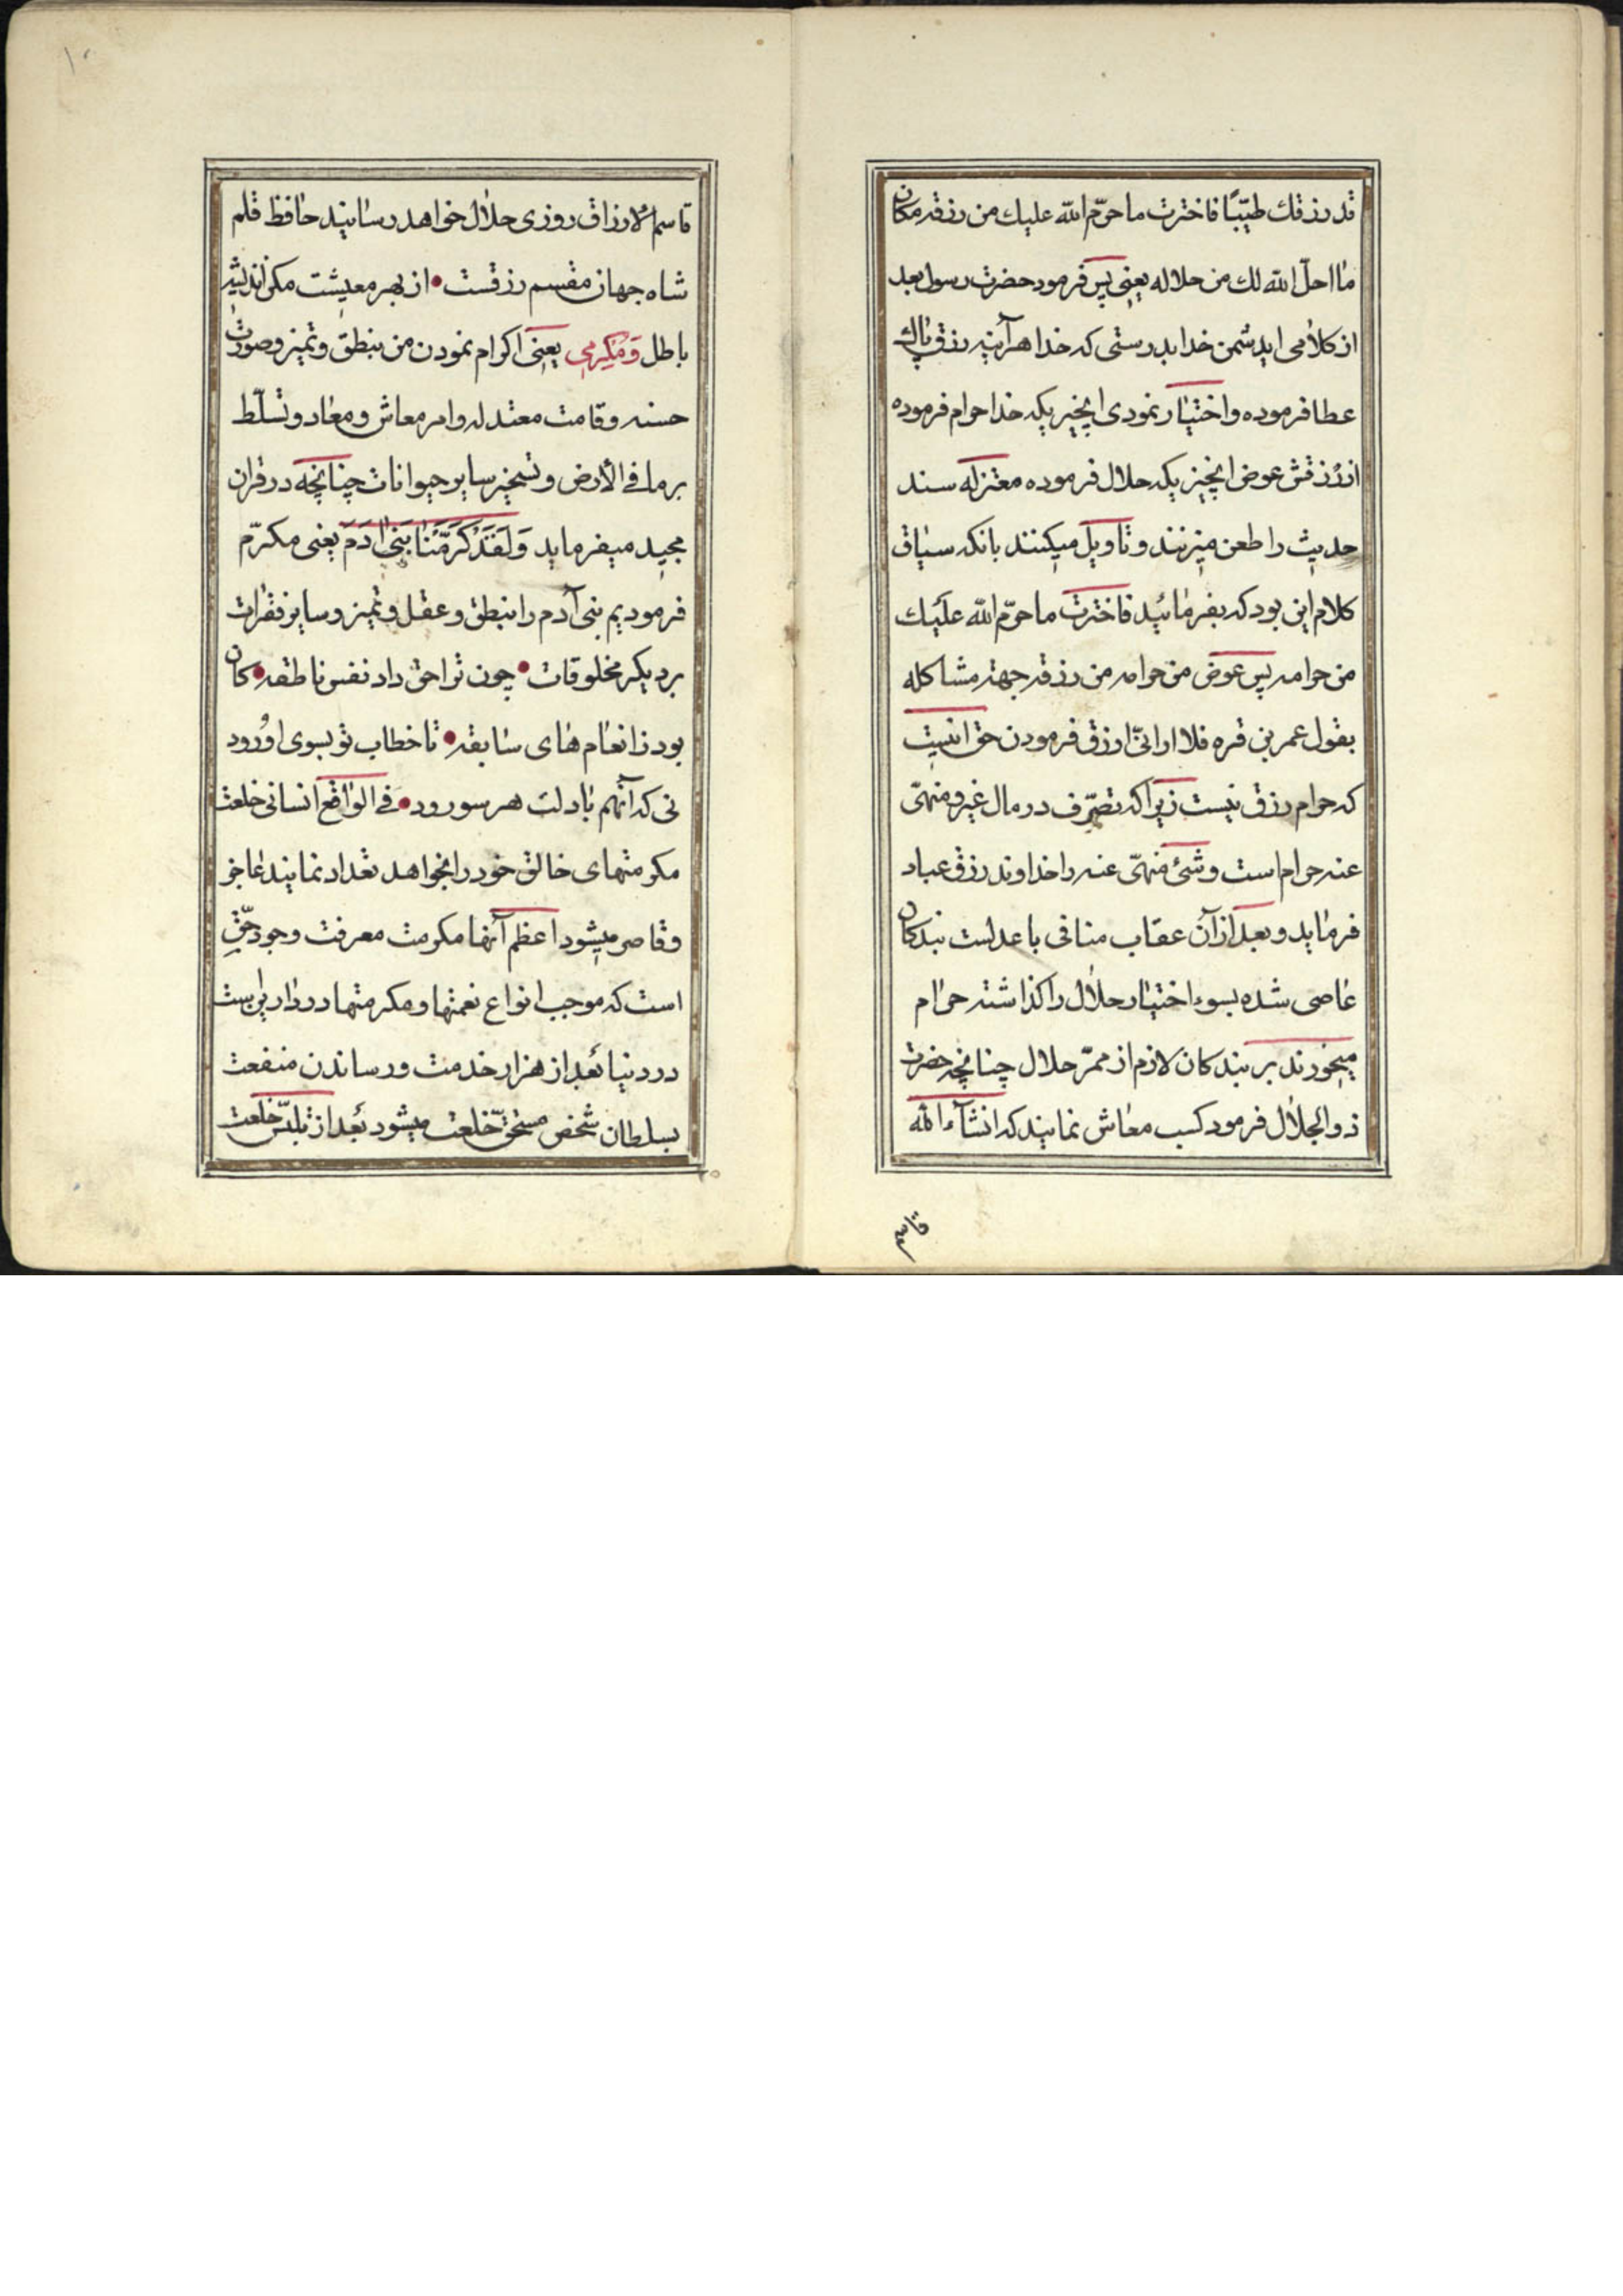 قد رزقك طيّبًا فاخترت ما حرّم الله عليك من رزقه مكان
ما احلّ الله لك من حلاله يعنى پس فرمود حضرت رسول بعد
از كلامى ايدشمن خدا بدرستى كه خدا هرآينه رزق پاك
عطا فرموده و اختيار نمودى انچيزيكه خدا حرام فرموده
از رزقش عوض انچيزيكه حلال فرموده معتزله سند
حديث را طعن ميزنند و تاويل ميكنند بانكه سياق
كلام اين بود كه بفرمائيد فاخترت ما حرّم الله عليك
من حرامه پس عوض من حرامه من رزقه جهته مشاكله
بقول عمر بن قره فلا ارانىّ ارزق فرمودن حق انيست
كه حرام رزق نيست زيراكه تصرّف در مال غير و منهىّ
عنه حرام است و شئ منهىّ عنه را خداوند رزق عباد
فرمايد و بعد از آن عقاب منافى با عدلست بندكان
عاصى شده بسوء اختيار حلال را كذاشته حرام
ميخورند بر بندكان لازم از ممرّ حلال چنانچه حضرت
ذو الجلال فرمود كسب معاش نمايند كه انشآء الله
قاسم
١٠
قاسم الارزاق روزى حلال خواهد رسانيد حافظ قلم
شاه جهان مقسم رزقست • از بهر معيشت مكن انديشه
باطل وَمُكرِمى يعنى اكرام نمودن من بنطق و تميز و صورت
حسنه و قامت معتدله و امر معاش و معاد و تسلّط
بر ما فى الارض و تسخير ساير حيوانات چنانچه در قران
مجيد ميفرمايد وَلَقَدْ كَرَّمْنَا بَنِى ادَمَ يعنى مكرّم
فرموديم بنى آدم را بنطق و عقل و تميز و ساير فقرات
بر ديكر مخلوقات • چون ترا حق داد نفس ناطقه • كان
بود ز انعام هاى سابقه • تا خطاب تو بسوى او رود
نى كه آنهم بادلت هر سو رود • فى الواقع انسانى خلعت
مكرمتهاى خالق خود را بخواهد تعداد نمايند عاجز
و قاصر ميشود اعظم آنها مكرمت معرفت وجود حقّ
است كه موجب انواع نعمتها و مكرمتها در دارين است
در دنيا بعد از هزار خدمت و رساندن منفعت
بسلطان شخص مستحقّ خلعت ميشود بعد از تلبّس خلعت